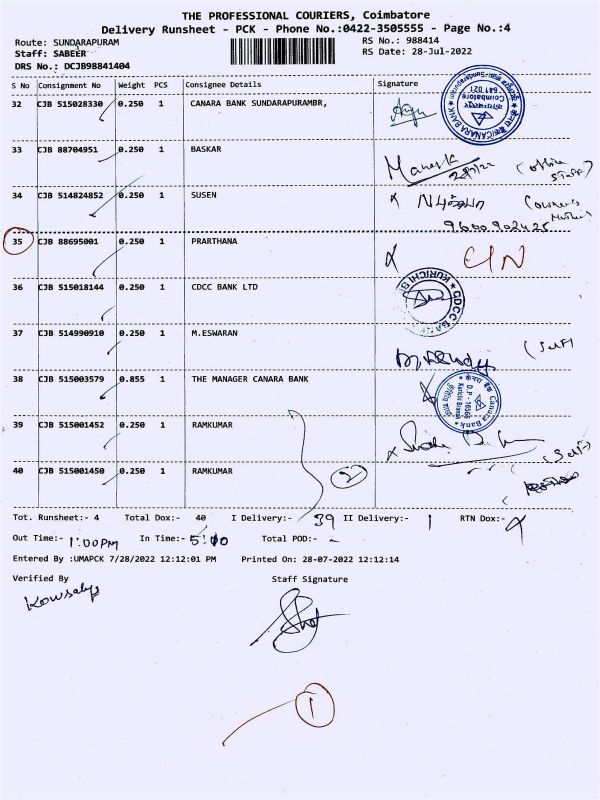 THE PROFESSIONAL COURIERS, Coimbatore
Delivery Runsheet - PCK - Phone No.:0422-3505555 - Page No.:4
Route: SUNDARAPURAM RS No.: 988414
Staff: SABEER RS Date: 28-Jul-2022
DRS No.: DCJB98841404
S No Consignment No Weight PCS Consignee Details Signature
32 CJB 515028330 0.250 1 CANARA BANK SUNDARAPURAMBR,
33 CJB 88704951 0.250 1 BASKAR
34 CJB 514824852 0.250 1 SUSEN
9600902425
35 CJB 88695001 0.250 1 PRARTHANA
36 CJB 515018144 0.250 1 CDCC BANK LTD
37 CJB 514990910 0.250 1 M.ESWARAN
38 CJB 515003579 0.855 1 THE MANAGER CANARA BANK
39 CJB 515001452 0.250 1 RAMKUMAR
40 CJB 515001450 0.250 1 RAMKUMAR
2
Tot. Runsheet:- 4 Total Dox:- 40 I Delivery:- 39 II Delivery:- 1 RTN Dox:-
Out Time:- 1:00PM In Time:- 5:00 Total POD:- -
Entered By :UMAPCK 7/28/2022 12:12:01 PM Printed On: 28-07-2022 12:12:14
Verified By Staff Signature
Kowsalya
1